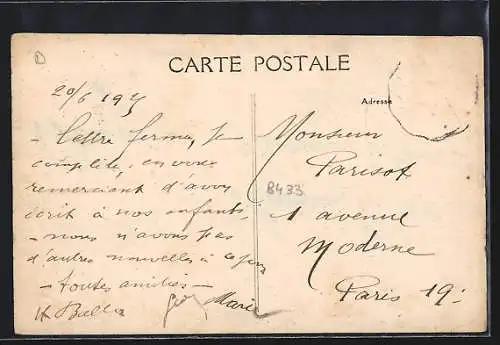 CARTE POSTALE
20/6 19
Adresse
- Lettre ferme, je
complète, en vous
remerciant d'avoir
écrit à nos enfants,
- nous n'avons pas
d'autres nouvelles à ce jour
- toutes amitiés -
Marie
Monsieur
Parisot
8433
1 avenue
Moderne
Paris 19: